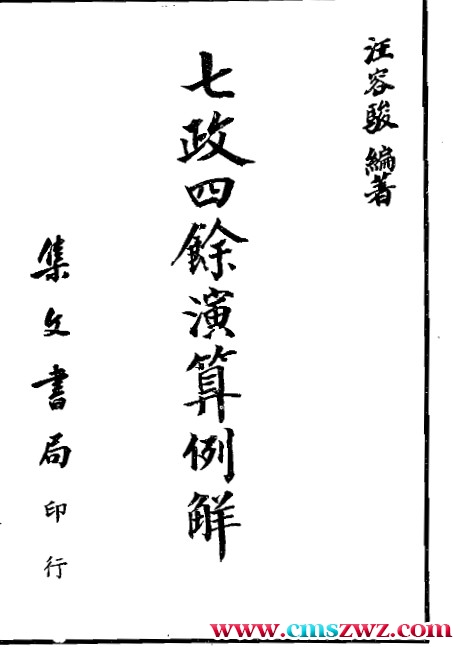 汪容駿編著
七政四餘演算例解
集文書局印行
www.cmszwz.com